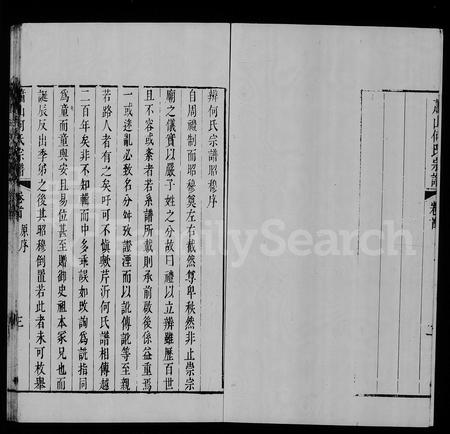 蕭山何氏宗譜 卷首
辨何氏宗譜昭穆序
自周禮制而昭穆奠左右截然尊卑秩然非止崇宗
廟之儀實以嚴子姓之分故曰禮以立辨雖歷百世
且不容或紊者若系譜所載則承前啟後係益重焉
一或迷亂必致名分舛攷證湮而以訛傳訛等至親
若路人者有之矣吁可不慎歟芹沂何氏譜相傳越
二百年矣非不知輯而中多乖誤如攺詢為訦指同
為童而童與安且易位甚至贈御史祖本冢兄也而
誕辰反出季弟之後其昭穆倒置若此者未可枚舉
蕭山何氏宗譜 卷首 原序
FamilySearch